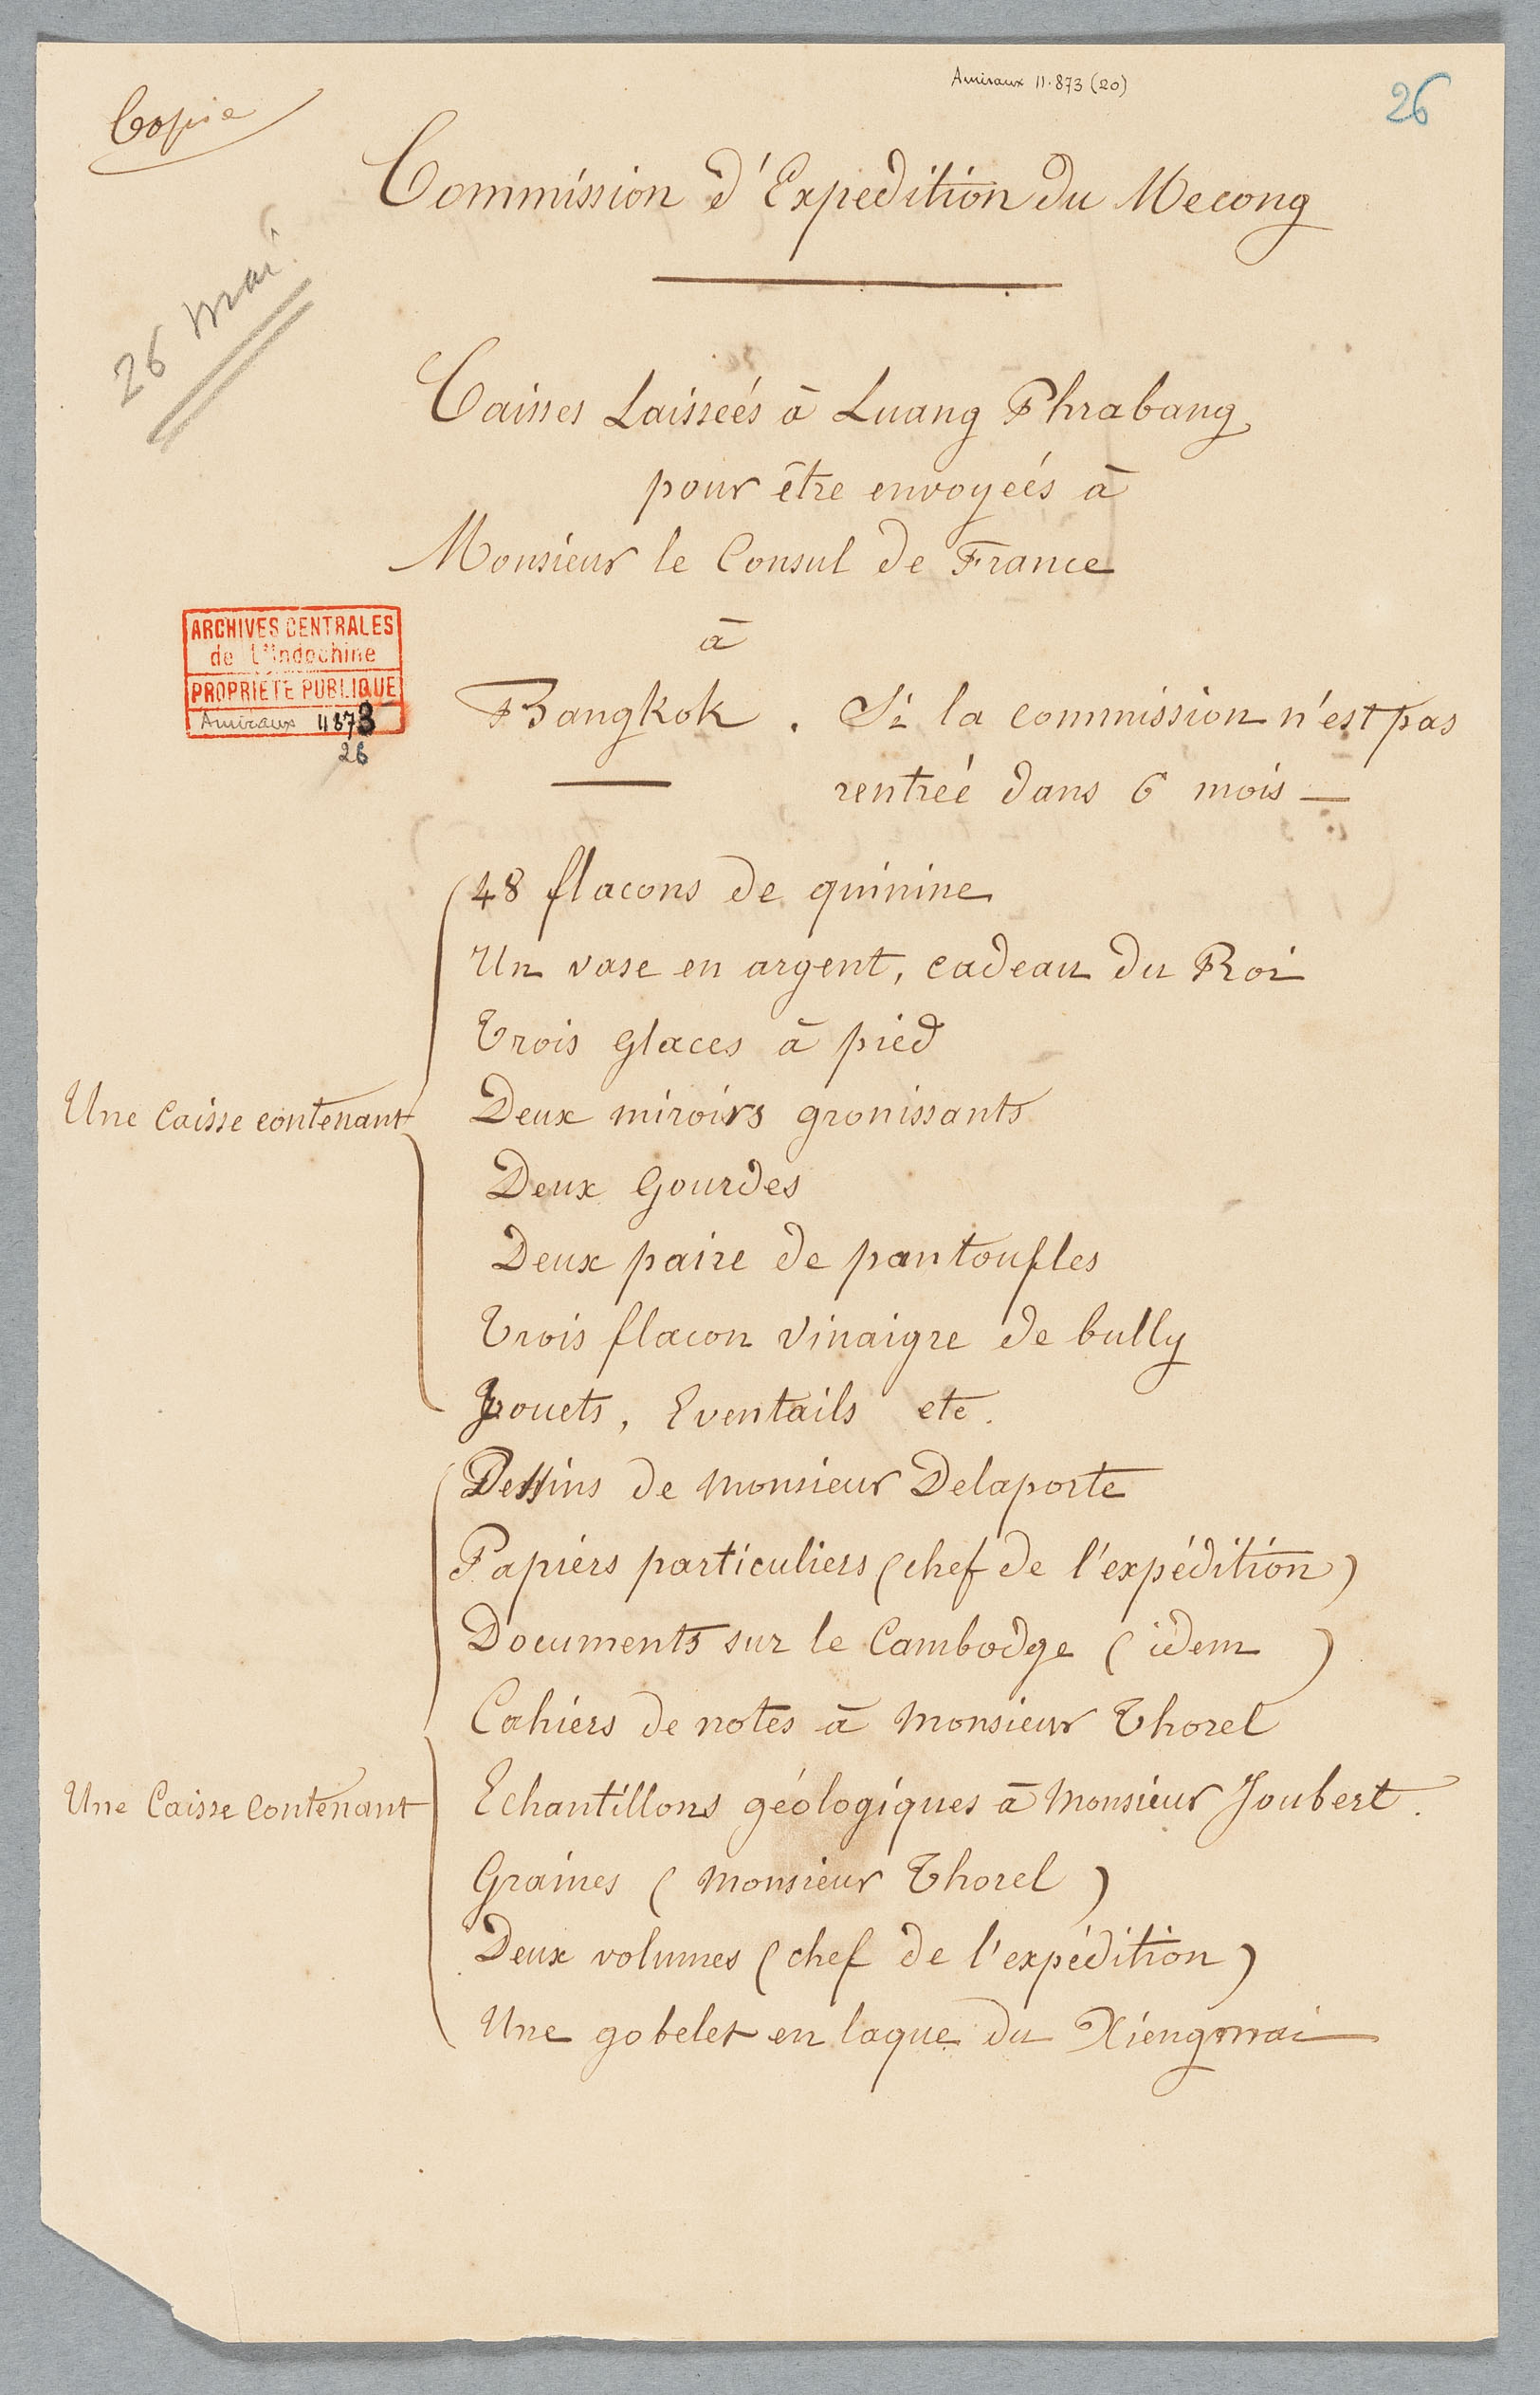 Amiraux 11.873 (20)
26
Copie
Commission d'Expedition du Mecong
26 mai.
Caisses Laisseés à Luang Phrabang
pour être envoyeés à
Monsieur le Consul de France
à
Bangkok. Si la commission n'est pas
rentreé dans 6 mois —
ARCHIVES CENTRALES
de L'Indochine
PROPRIETE PUBLIQUE
Amiraux 11873
26
48 flacons de quinine
Un vase en argent, cadeau du Roi
Trois glaces à pied
Une Caisse contenant
Deux miroirs gronissants
Deux Gourdes
Deux paire de pantoufles
Trois flacon vinaigre de bully
Jouets, Eventails etc.
Dessins de Monsieur Delaporte
Papiers particuliers (chef de l'expédition)
Documents sur le Cambodge (idem)
Cahiers de notes à Monsieur Thorel
Une Caisse Contenant
Echantillons géologiques à Monsieur Joubert.
Graines (Monsieur Thorel)
Deux volumes (chef de l'expédition)
Une gobelet en laque du Xiengmai